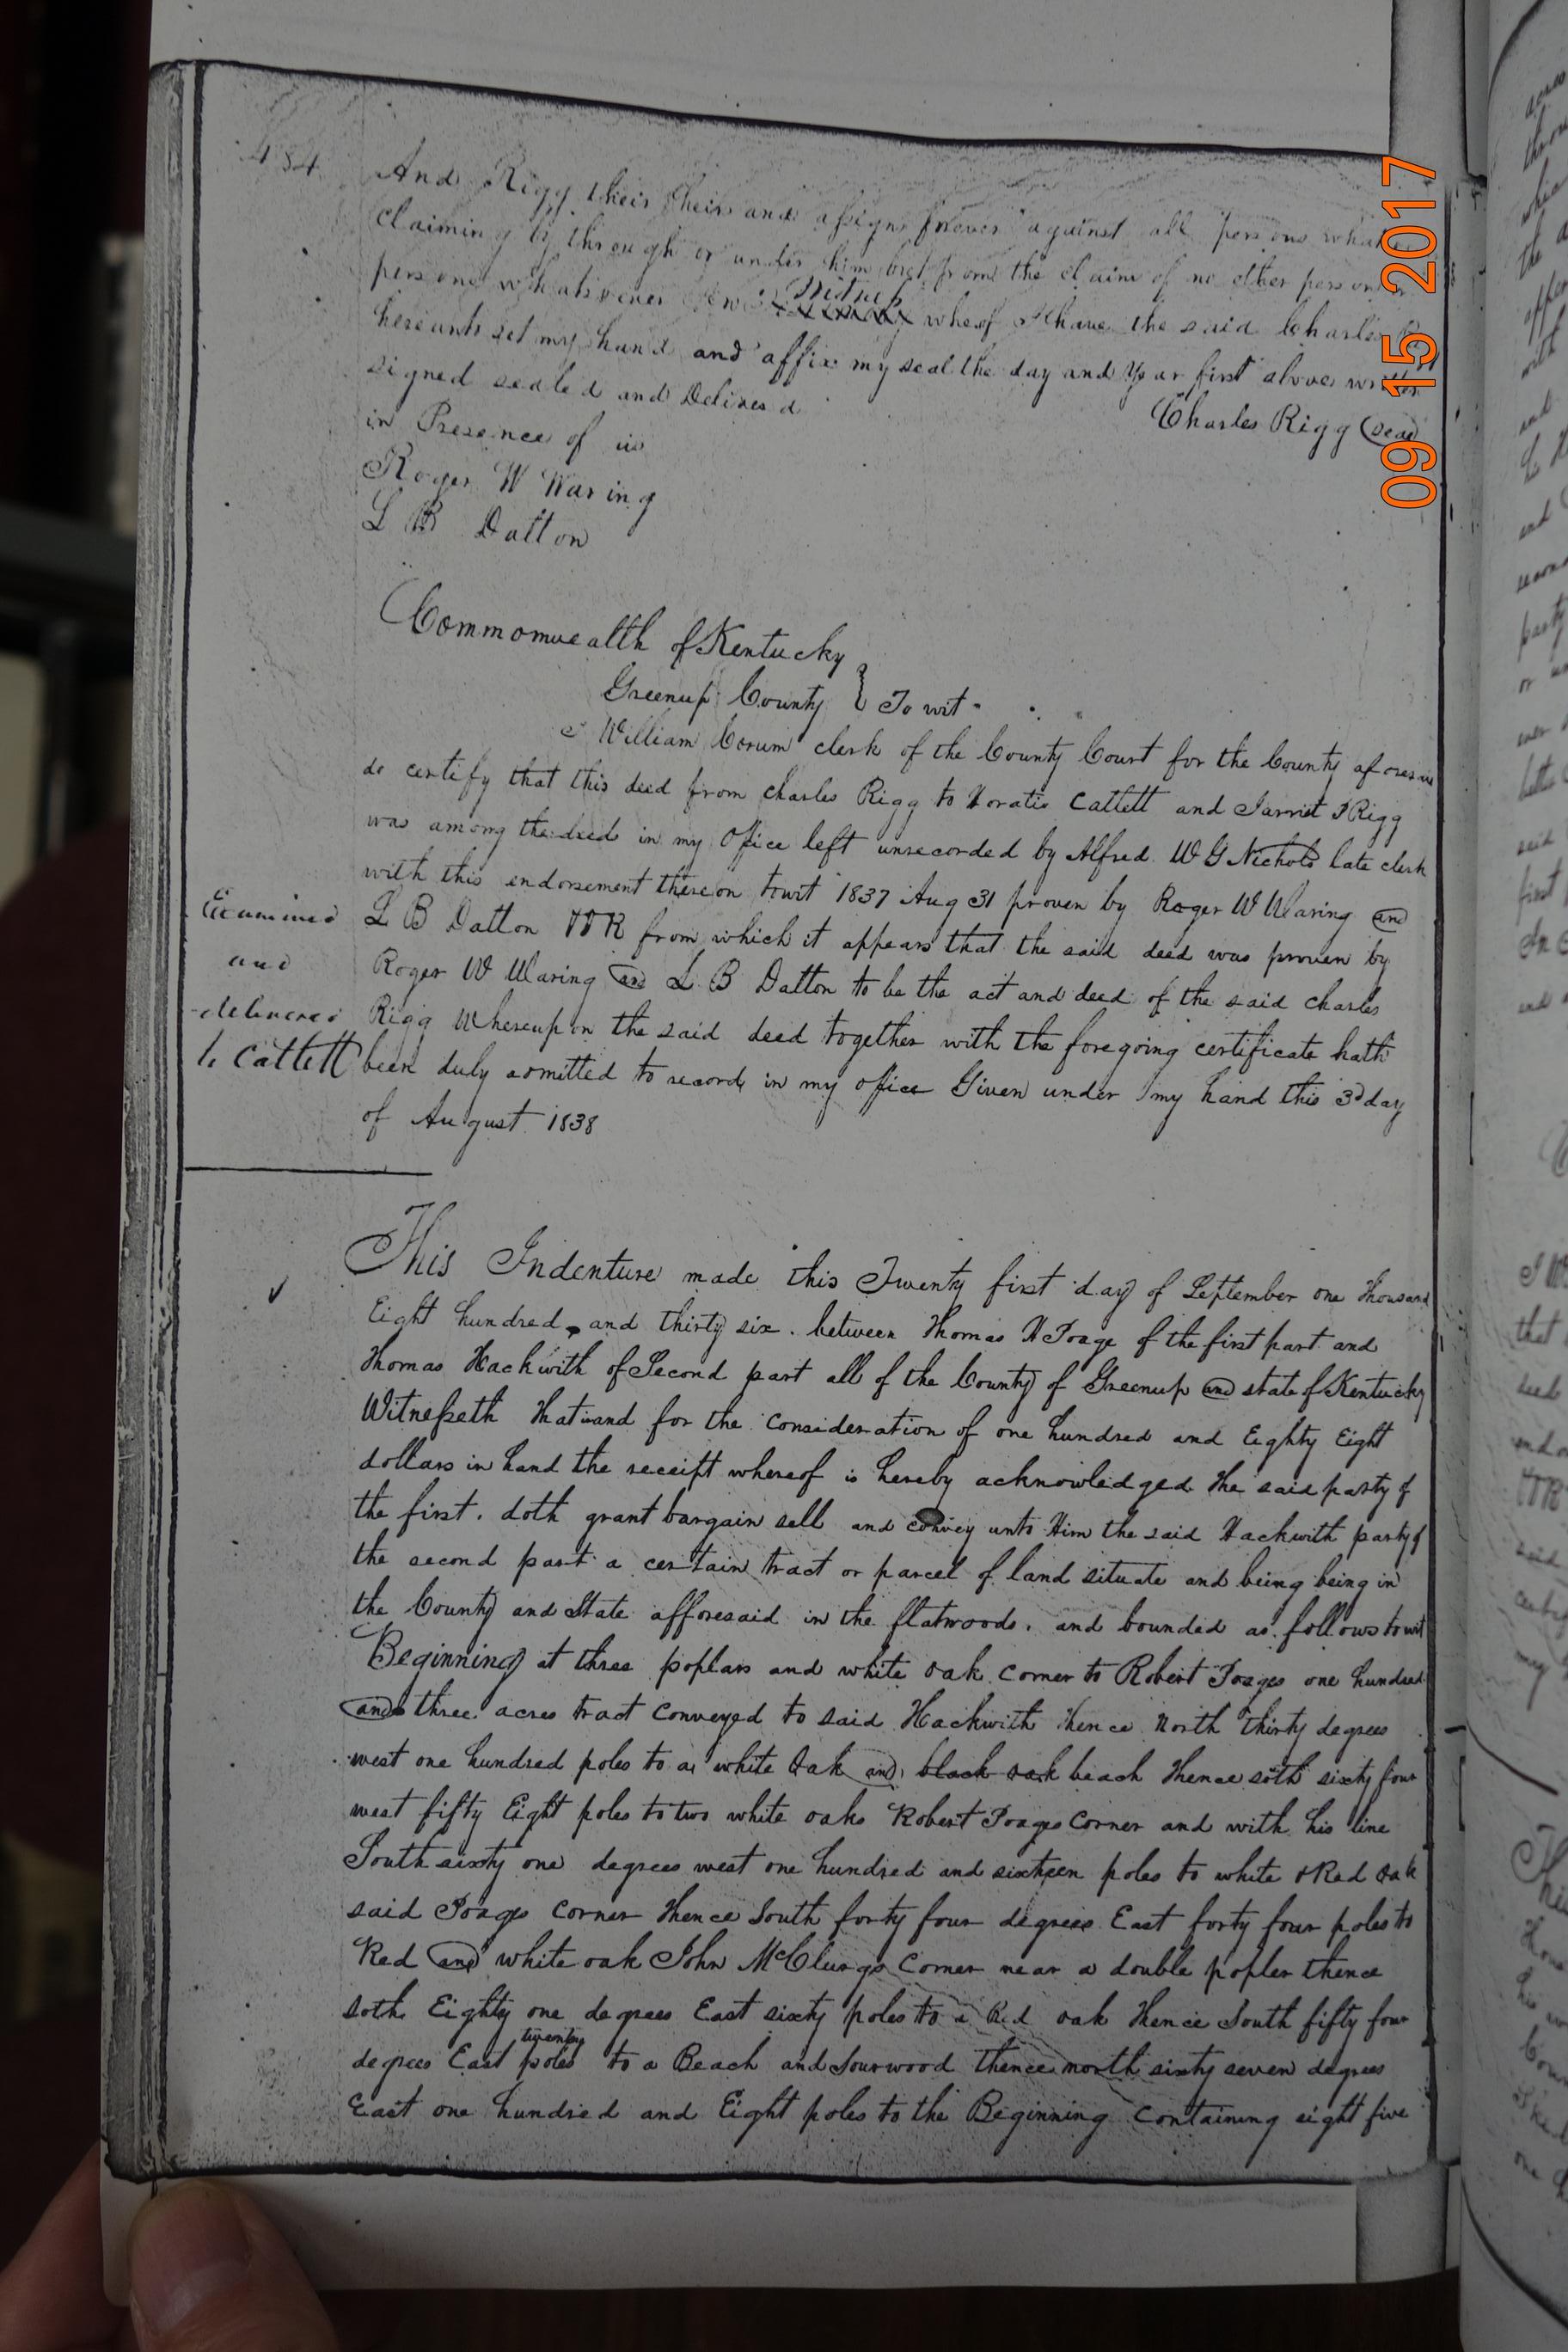 484
And Rigg their heirs and assigns forever against all persons
claiming by through or under him but from the claim of no other person or
persons whatsoever In Witness wheof I have the said Charles
hereunto set my hand and affix my seal the day and Year first above written
signed sealed and Delivered
Charles Rigg (seal)
in Presence of us
Roger W Waring
L B Datton
Commomwealth of Kentucky
Greenup County } To wit
I William Corum clerk of the County Court for the County aforesaid
do certify that this deed from Charles Rigg to Horatio Catlett and Jarret Rigg
was among the deed in my Office left unrecorded by Alfred W G Nichols late clerk
with this endorsement thereon towit 1837 Aug 31 proven by Roger W Waring and
Examined L B Datton from which it appears that the said deed was proven by
and Roger W Waring and L B Datton to be the act and deed of the said Charles
delivered Rigg Whereupon the said deed together with the foregoing certificate hath
to Catlett been duly admitted to record in my office Given under my hand this 3d day
of August 1838
This Indenture made this Twenty first day of September one thousand
Eight hundred and thirty six. between Thomas H Poage of the first part and
Thomas Hackwith of Second part all of the County of Greenup and state of Kentucky
Witnesseth that and for the consideration of one hundred and Eighty Eight
dollars in hand the receipt whereof is hereby acknowledged the said party of
the first. doth grant bargain sell and convey unto Him the said Hackwith party of
the second part a certain tract or parcel of land situate and being being in
the County and State afforesaid in the flatwoods. and bounded as follows to wit
Beginning at three poplars and white oak corner to Robert Poages one hundred
and three acres tract conveyed to said Hackwith thence North thirty degrees
west one hundred poles to a white Oak and black oak beach thence soth sixty four
west fifty Eight poles to two white oaks Robert Poages Corner and with his line
South sixty one degrees west one hundred and sixteen poles to white & Red Oak
said Poages Corner thence South forty four degrees East forty four poles to
Red and white oak John McClurgs Corner near a double popler thence
soth Eighty one degrees East sixty poles to a Red oak thence South fifty four
degrees East twenty poles to a Beach and Sourwood thence north sixty seven degrees
East one hundred and Eight poles to the Beginning Containing eight five
09 15 2017